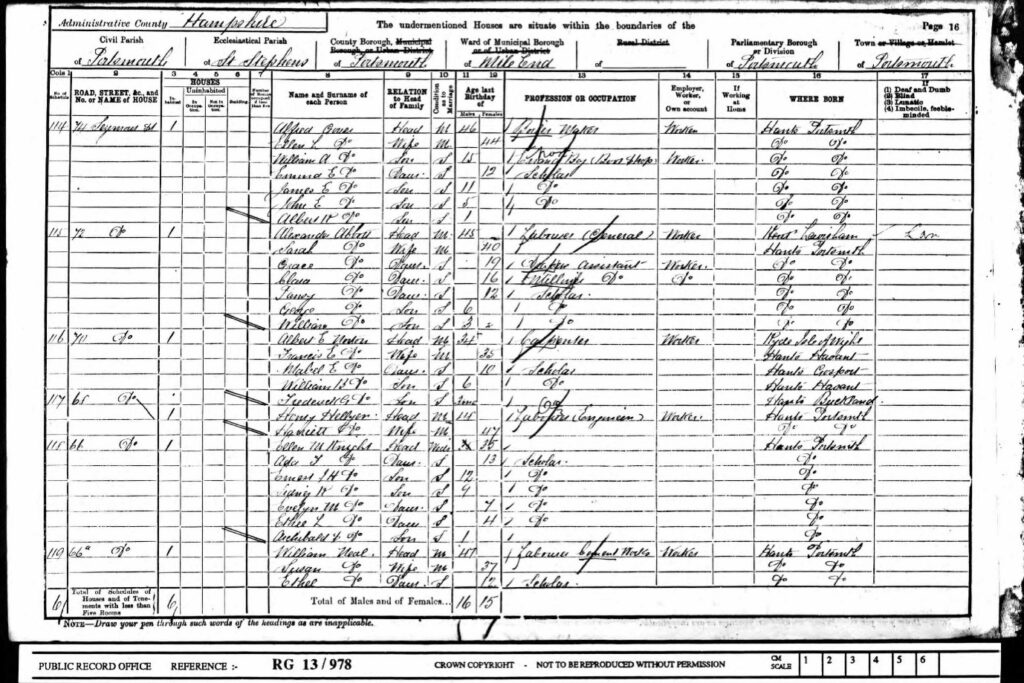 Administrative County Hampshire
The undermentioned Houses are situate within the boundaries of the
Page 16
Civil Parish
of Portsmouth
Ecclesiastical Parish
of St Stephens
County Borough, Municipal Borough, or Urban District
of Portsmouth
Ward of Municipal Borough or of Urban District
of Mile End
Rural District
of
Parliamentary Borough or Division
of Portsmouth
Town or Village or Hamlet
of Portsmouth
Cols 1 2 3 4 5 6 7 8 9 10 11 12 13 14 15 16 17
No. of Schedule
ROAD, STREET, &c., and No. or NAME of HOUSE
HOUSES
Inhabited
Uninhabited
In Occupation
Not in Occupation
Building
Name and Surname of each Person
RELATION to Head of Family
Condition as to Marriage
Age last Birthday of
Males Females
PROFESSION OR OCCUPATION
Employer, Worker, or Own account
If Working at Home
WHERE BORN
If (1) Deaf and Dumb (2) Blind (3) Lunatic (4) Imbecile, feeble-minded
114 74 Seymour St 1 Alfred Head M 46 Maker Worker Hants Portsmth
Ellen L Do Wife M 44 Do Do
William A Do Son S 15 Errand Boy (Boot Shop) Worker Do Do
Emma E Do Daur S 12 Scholar Do Do
James E Do Son S 11 Do Do Do
John E Do Son S 5 Do Do Do
Albert W Do Son S 1 Do Do
115 72 Do 1 Alexander Abbott Head M 45 Labourer (General) Worker Kent Lewisham Lon
Sarah Do Wife M 40 Hants Portsmth
Grace Do Daur S 19 Assistant Worker Do Do
Clara Do Daur S 16 Do Do Do Do
Do Daur S 12 Scholar Do Do
George Do Son S 6 Do Do Do
William Do Son S 3 Do Do Do
116 70 Do 1 Albert E Norton Head M 34 Carpenter Worker Ryde Isle of Wight
Francis E Do Wife M 35 Hants Havant
Mabel E Do Daur S 10 Scholar Hants Gosport
William B Do Son S 6 Do Hants Havant
Frederick G Do Son S 3mo Hants Buckland
117 68 Do 1 Henry Hellyer Head M 45 Labourer (Engineer) Worker Hants Portsmth
Harriett Do Wife M 47 Do Do
118 66 Do 1 Ellen M Knight Head Wid 35 Hants Portsmth
Ada F Do Daur S 13 Scholar Do
Ernest J H Do Son S 12 Do Do
Sidney W Do Son S 9 Do Do
Evelyn M Do Daur S 7 Do Do
Ethel L Do Daur S 4 Do Do
Archibald F Do Son S 1 Do
119 66a Do 1 William Neal Head M 47 Labourer Cement Works Worker Hants Portsmth
Susan Do Wife M 37 Do Do
Ethel Do Daur S 12 Scholar Do Do
6 Total of Schedules of Houses and of Tenements with less than Five Rooms 6 Total of Males and of Females... 16 15
NOTE—Draw your pen through such words of the headings as are inapplicable.
PUBLIC RECORD OFFICE REFERENCE :- RG 13/978 CROWN COPYRIGHT - NOT TO BE REPRODUCED WITHOUT PERMISSION CM SCALE 1 2 3 4 5 6